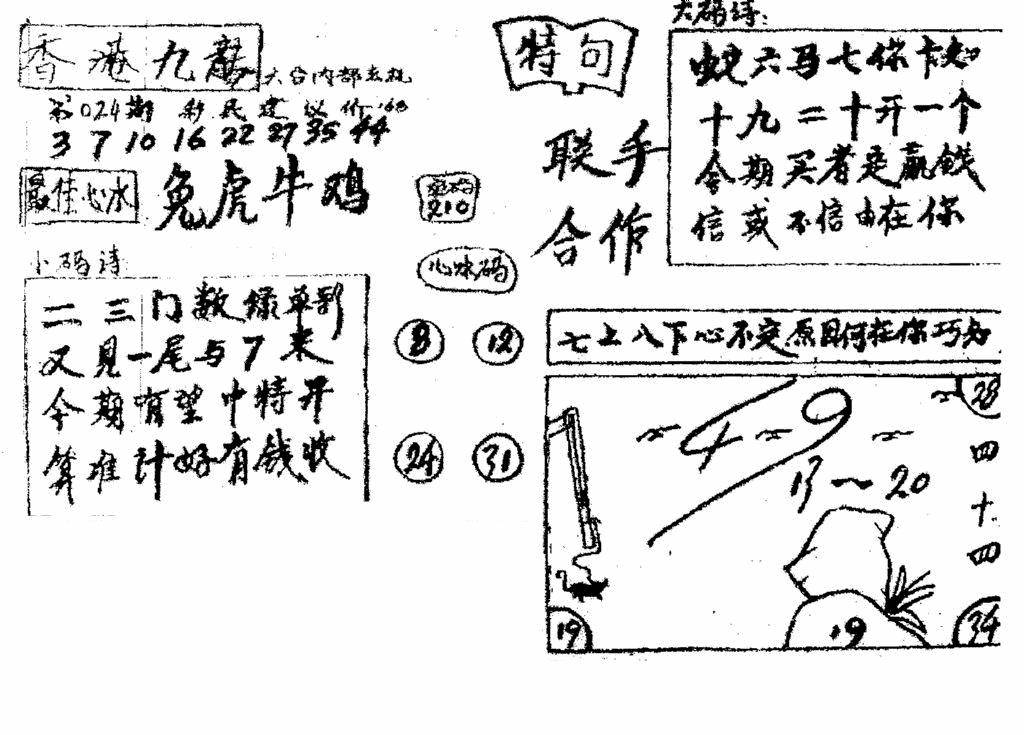 香港九龍
六合内部玄机
第024期 彩民建议价
3 7 10 16 22 27 35 44
最佳心水
兔虎牛鸡
小码诗
二三门数绿单到
又見一尾与7来
今期有望中特开
算准计好有钱收
心水码
8 12
24 31
特句
联手
合作
大码诗:
蛇六马七你卡知
十九二十开一个
今期买者是赢钱
信或不信由在你
七上八下心不定原因何在你巧知
28
49
13~20
四十四
19
19
34